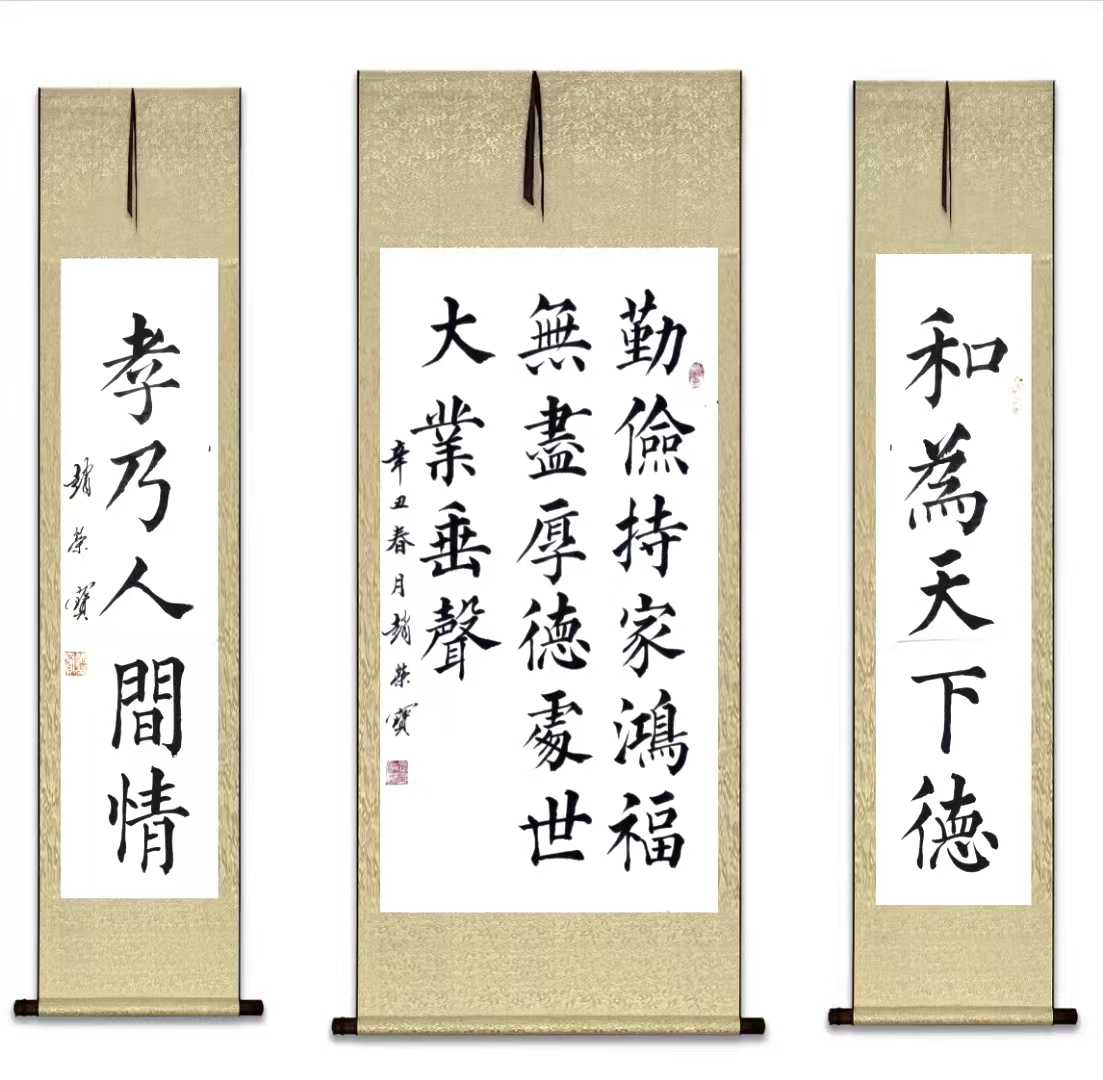 和為天下德
勤儉持家鴻福
無盡厚德處世
大業垂聲
辛丑春月趙榮寶
孝乃人間情
趙榮寶